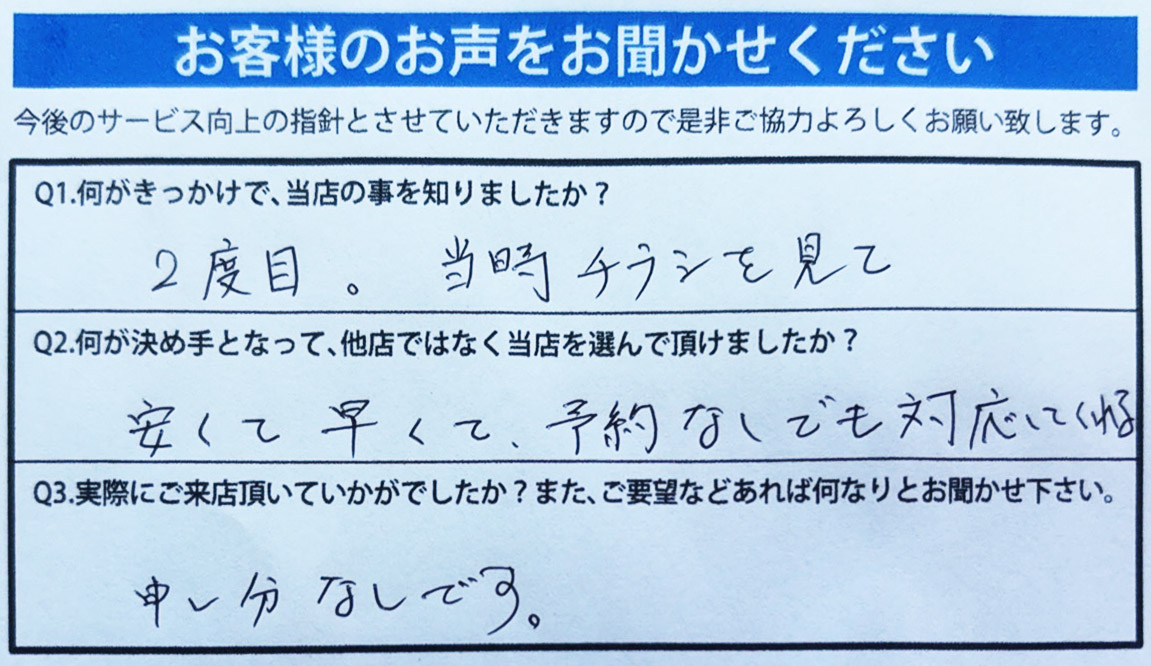 お客様のお声をお聞かせください
今後のサービス向上の指針とさせていただきますので是非ご協力よろしくお願い致します。
Q1.何がきっかけで、当店の事を知りましたか？
2度目。 当時チラシを見て
Q2.何が決め手となって、他店ではなく当店を選んで頂けましたか？
安くて早くて、予約なしでも対応してくれる
Q3.実際にご来店頂いていかがでしたか？また、ご要望などあれば何なりとお聞かせ下さい。
申し分なしです。